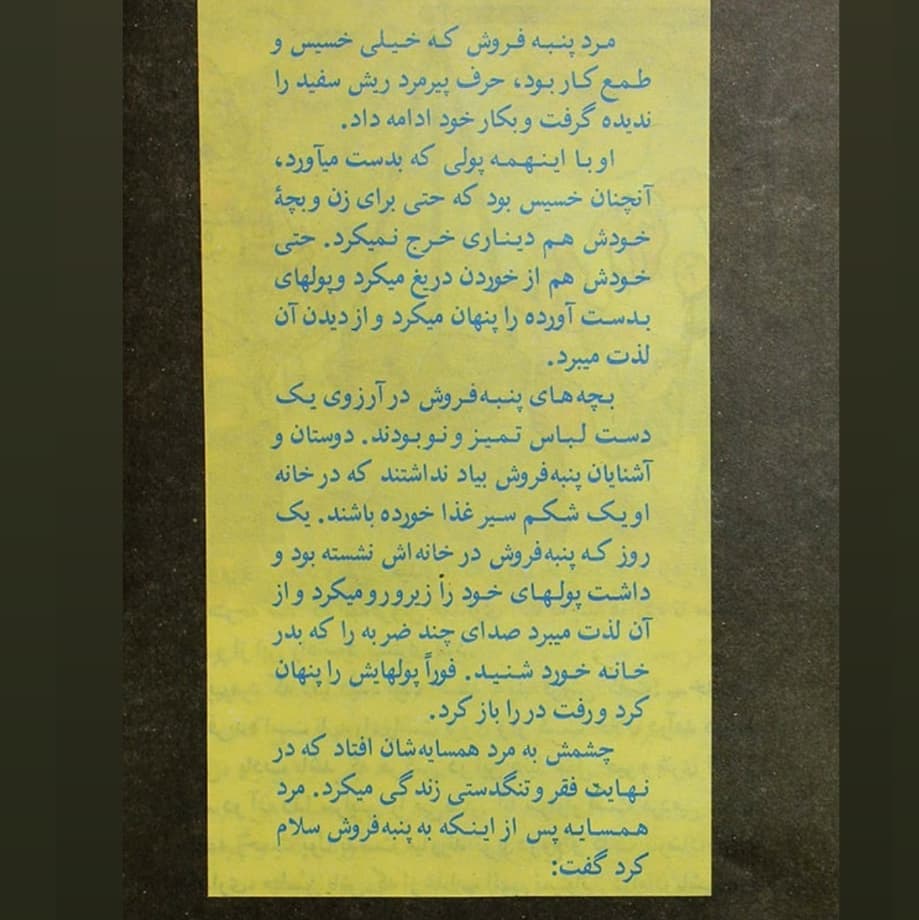 مرد پنبه فروش که خیلی خسیس و
طمع کار بود، حرف پیرمرد ریش سفید را
ندیده گرفت و بکار خود ادامه داد.
او با اینهمه پولی که بدست میآورد،
آنچنان خسیس بود که حتی برای زن و بچهٔ
خودش هم دیناری خرج نمیکرد. حتی
خودش هم از خوردن دریغ میکرد و پولهای
بدست آورده را پنهان میکرد و از دیدن آن
لذت میبرد.
بچه‌های پنبه‌فروش در آرزوی یک
دست لباس تمیز و نو بودند. دوستان و
آشنایان پنبه‌فروش بیاد نداشتند که در خانه
او یک شکم سیر غذا خورده باشند. یک
روز که پنبه‌فروش در خانه‌اش نشسته بود و
داشت پولهای خود را زیر و رو میکرد و از
آن لذت میبرد صدای چند ضربه را که بدر
خانه خورد شنید. فوراً پولهایش را پنهان
کرد و رفت در را باز کرد.
چشمش به مرد همسایه‌شان افتاد که در
نهایت فقر و تنگدستی زندگی میکرد. مرد
همسایه پس از اینکه به پنبه‌فروش سلام
کرد گفت: